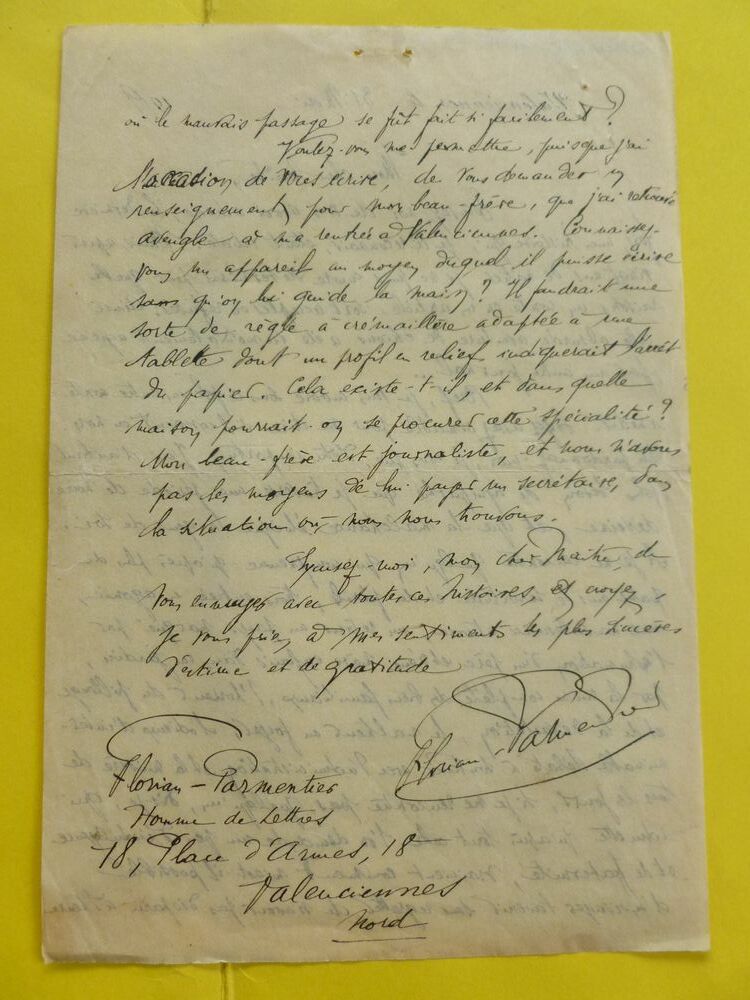 où le mauvais passage se fût fait si facilement ?
Voulez-vous me permettre, puisque j'ai
l'occasion de vous écrire, de vous demander un
renseignement pour mon beau-frère, que j'ai retrouvé
aveugle à ma rentrée à Valenciennes. Connaissez-
vous un appareil au moyen duquel il puisse écrire
sans qu'on lui guide la main ? Il faudrait une
sorte de règle à crémaillère adaptée à une
tablette dont un profil en relief indiquerait l'arrêt
du papier. Cela existe-t-il, et dans quelle
maison pourrait-on se procurer cette spécialité ?
Mon beau-frère est journaliste, et nous n'avons
pas les moyens de lui payer un secrétaire, dans
la situation où nous nous trouvons.
Excusez-moi, mon cher Maître, de
vous ennuyer avec toutes ces histoires, et croyez,
je vous prie, à mes sentiments les plus sincères
d'estime et de gratitude
Florian-Parmentier
Florian-Parmentier
Homme de Lettres
18, Place d'Armes, 18
Valenciennes
Nord